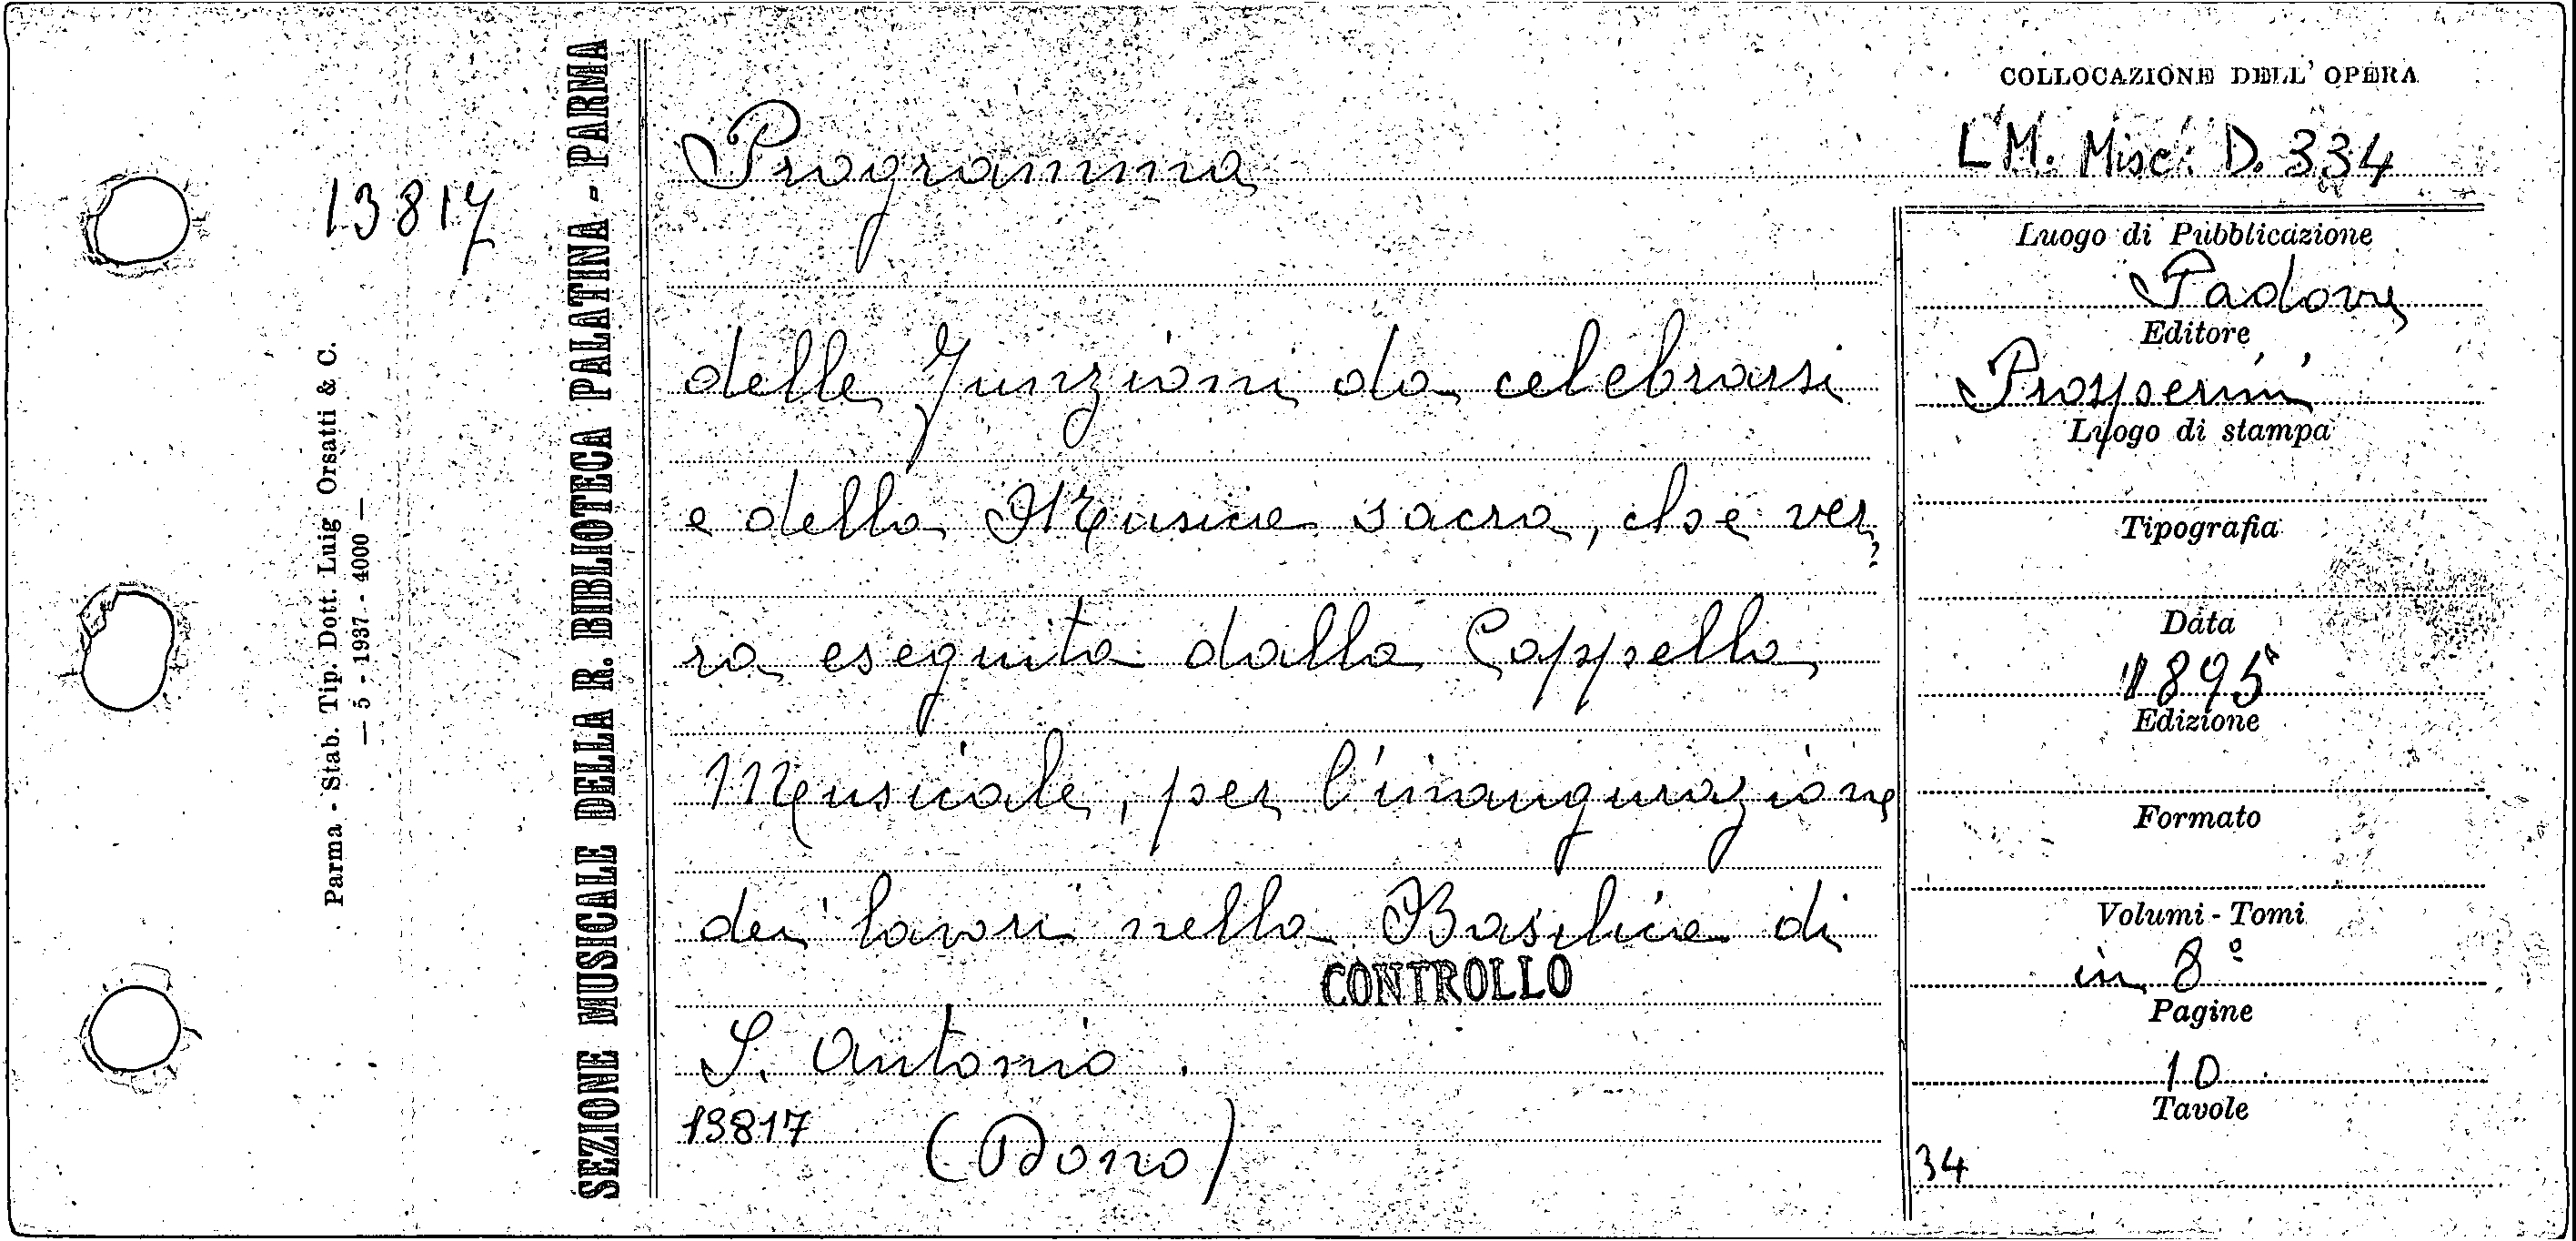 COLLOCAZIONE DELL' OPERA
LM. Misc. D. 334
13817
Parma - Stab. Tip. Dott. Luig Orsatti & C.
— 5 - 1937 - 4000 —
SEZIONE MUSICALE DELLA R. BIBLIOTECA PALATINA - PARMA
Programma
delle Funzioni da celebrarsi
e della Musica sacra, che ver
rà eseguita dalla Cappella
Musicale, per l'inaugurazione
dei lavori nella Basilica di
CONTROLLO
S. Antonio.
13817 (Dono)
Luogo di Pubblicazione
Padova
Editore
Prosperini
Luogo di stampa
Tipografia
Data
1895
Edizione
Formato
Volumi - Tomi
in 8°
Pagine
10
Tavole
34